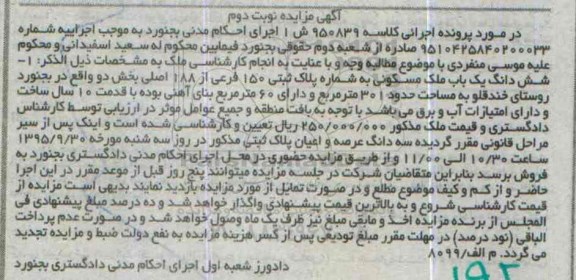 آگهی مزایده نوبت دوم
در مورد پرونده اجرائی کلاسه ۹۵۰۸۳۹ ش ۱ اجرای احکام مدنی بجنورد به موجب اجراییه شماره
۹۵۱۰۴۲۵۸۴۰۲۰۰۰۳۳ صادره از شعبه دوم حقوقی بجنورد فیمابین محکوم له سعید اسفیدانی و محکوم
علیه موسی منفردی با موضوع مطالبه وجه و با عنایت به انجام کارشناسی ملک به مشخصات ذیل الذکر: ۱-
شش دانگ یک باب ملک مسکونی به شماره پلاک ثبتی ۱۵۰ فرعی از ۱۸۸ اصلی بخش دو واقع در بجنورد
روستای خندقلو به مساحت حدود ۳۰۱ مترمربع و دارای ۶۰ مترمربع بنای آهنی بوده با قدمت ۱۰ سال ساخت
و دارای امتیازات آب و برق می باشد با توجه به بافت منطقه و جمیع عوامل موثر در ارزیابی توسط کارشناس
دادگستری و قیمت ملک مذکور ۲۵۰/۰۰۰/۰۰۰ ریال تعیین و کارشناسی شده است و اینک پس از سیر
مراحل قانونی مقرر گردیده سه دانگ عرصه و اعیان پلاک ثبتی مذکور در روز سه شنبه مورخه ۱۳۹۵/۹/۳۰
ساعت ۱۰/۳۰ الی ۱۱/۰۰ و از طریق مزایده حضوری در محل اجرای احکام مدنی دادگستری بجنورد به
فروش برسد بنابراین متقاضیان شرکت در جلسه مزایده میتوانند پنج روز قبل از موعد مقرر در این اجرا
حاضر و از کم و کیف موضوع مطلع و در صورت تمایل از مورد مزایده بازدید نمایند بدیهی است مزایده از
قیمت کارشناسی شروع و به بالاترین قیمت پیشنهادی واگذار خواهد شد و ده درصد مبلغ پیشنهادی فی
المجلس از برنده مزایده اخذ و مابقی مبلغ نیز ظرف یک ماه وصول خواهد شد و در صورت عدم پرداخت
الباقی (نود درصد) در مهلت مقرر مبلغ تودیعی پس از کسر هزینه مزایده به نفع دولت ضبط و مزایده تجدید
می گردد. م الف/۸۰۹۹
دادورز شعبه اول اجرای احکام مدنی دادگستری بجنورد